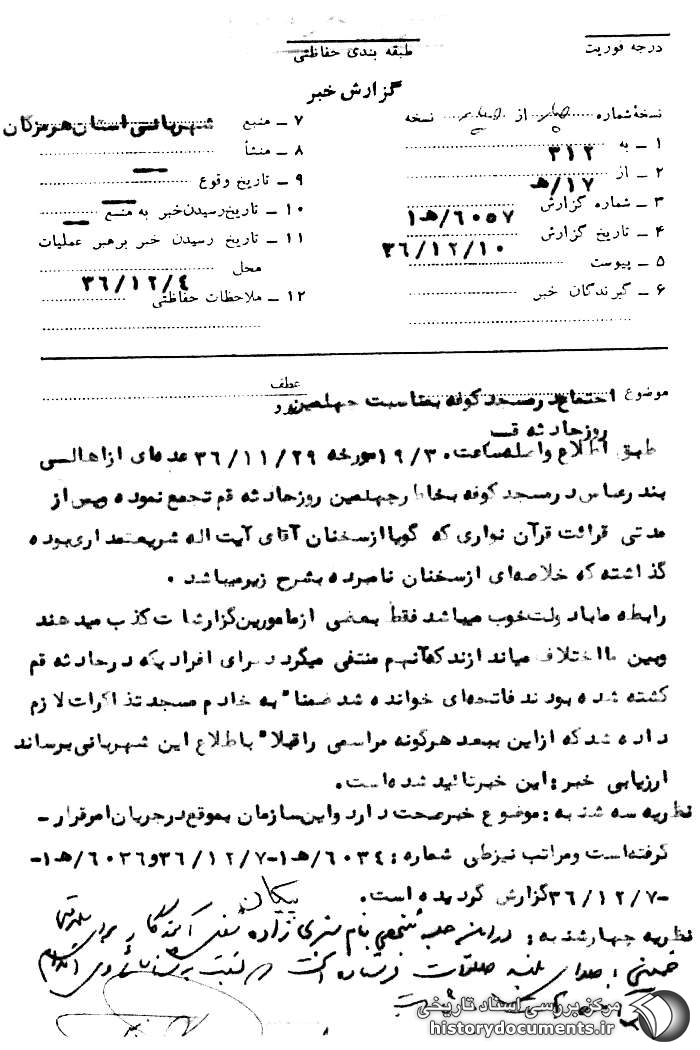 درجه فوریت
طبقه بندی حفاظتی
گزارش خبر
نسخهٔ شماره چهار از چهار نسخه
۱ ـ به ۳۱۲
۲ ـ از ۱۷/هـ
۳ ـ شماره گزارش ۶۰۵۷/هـ۱
۴ ـ تاریخ گزارش ۳۶/۱۲/۱۰
۵ ـ پیوست
۶ ـ گیرندگان خبر
۷ ـ منبع شهربانی استان هرمزگان
۸ ـ منشأ
۹ ـ تاریخ وقوع
۱۰ ـ تاریخ رسیدن خبر به منبع
۱۱ ـ تاریخ رسیدن خبر برهبر عملیات
محل ۳۶/۱۲/۴
۱۲ ـ ملاحظات حفاظتی
عطف
موضوع اجتماع در مسجد کوفه بمناسبت چهلمین
روز حادثه قم
طبق اطلاع واصله ساعت ۱۹/۳۰ مورخه ۳۶/۱۱/۲۹ عده‌ای از اهالی
بندرعباس در مسجد کوفه بخاطر چهلمین روز حادثه قم تجمع نموده و پس از
مدتی قرائت قرآن نواری که گویا از سخنان آقای آیت اله شریعتمداری بوده
گذاشته که خلاصه‌ای از سخنان نامبرده بشرح زیر میباشد .
رابطه ما با دولت خوب میباشد فقط بعضی از مامورین گزارشات کذب میدهند
و بین ما اختلاف میاندازند که آنهم منتفی میگردد برای افرادیکه در حادثه قم
کشته شده بودند فاتحه‌ای خوانده شد ضمنا" به خادم مسجد تذاکرات لازم
داده شد که از این ببعد هرگونه مراسمی را قبلا" باطلاع این شهربانی برساند
ارزیابی خبر : این خبر تائید شده است .
نظریه سه شنبه : موضوع خبر صحت دارد و این سازمان بموقع در جریان امر قرار ـ
گرفته است و مراتب نیز طی شماره : ۶۰۳۴/هـ۱-۳۶/۱۲/۷ و ۶۰۳۶/هـ۱-
-۳۶/۱۲/۷ گزارش گردیده است . پیکان
نظریه چهارشنبه : در این جلسه شخصی بنام زاده شغل
خمینی ; صدای بلند صلوات فرستاده است
مرکز بررسی اسناد تاریخی
historydocuments.ir